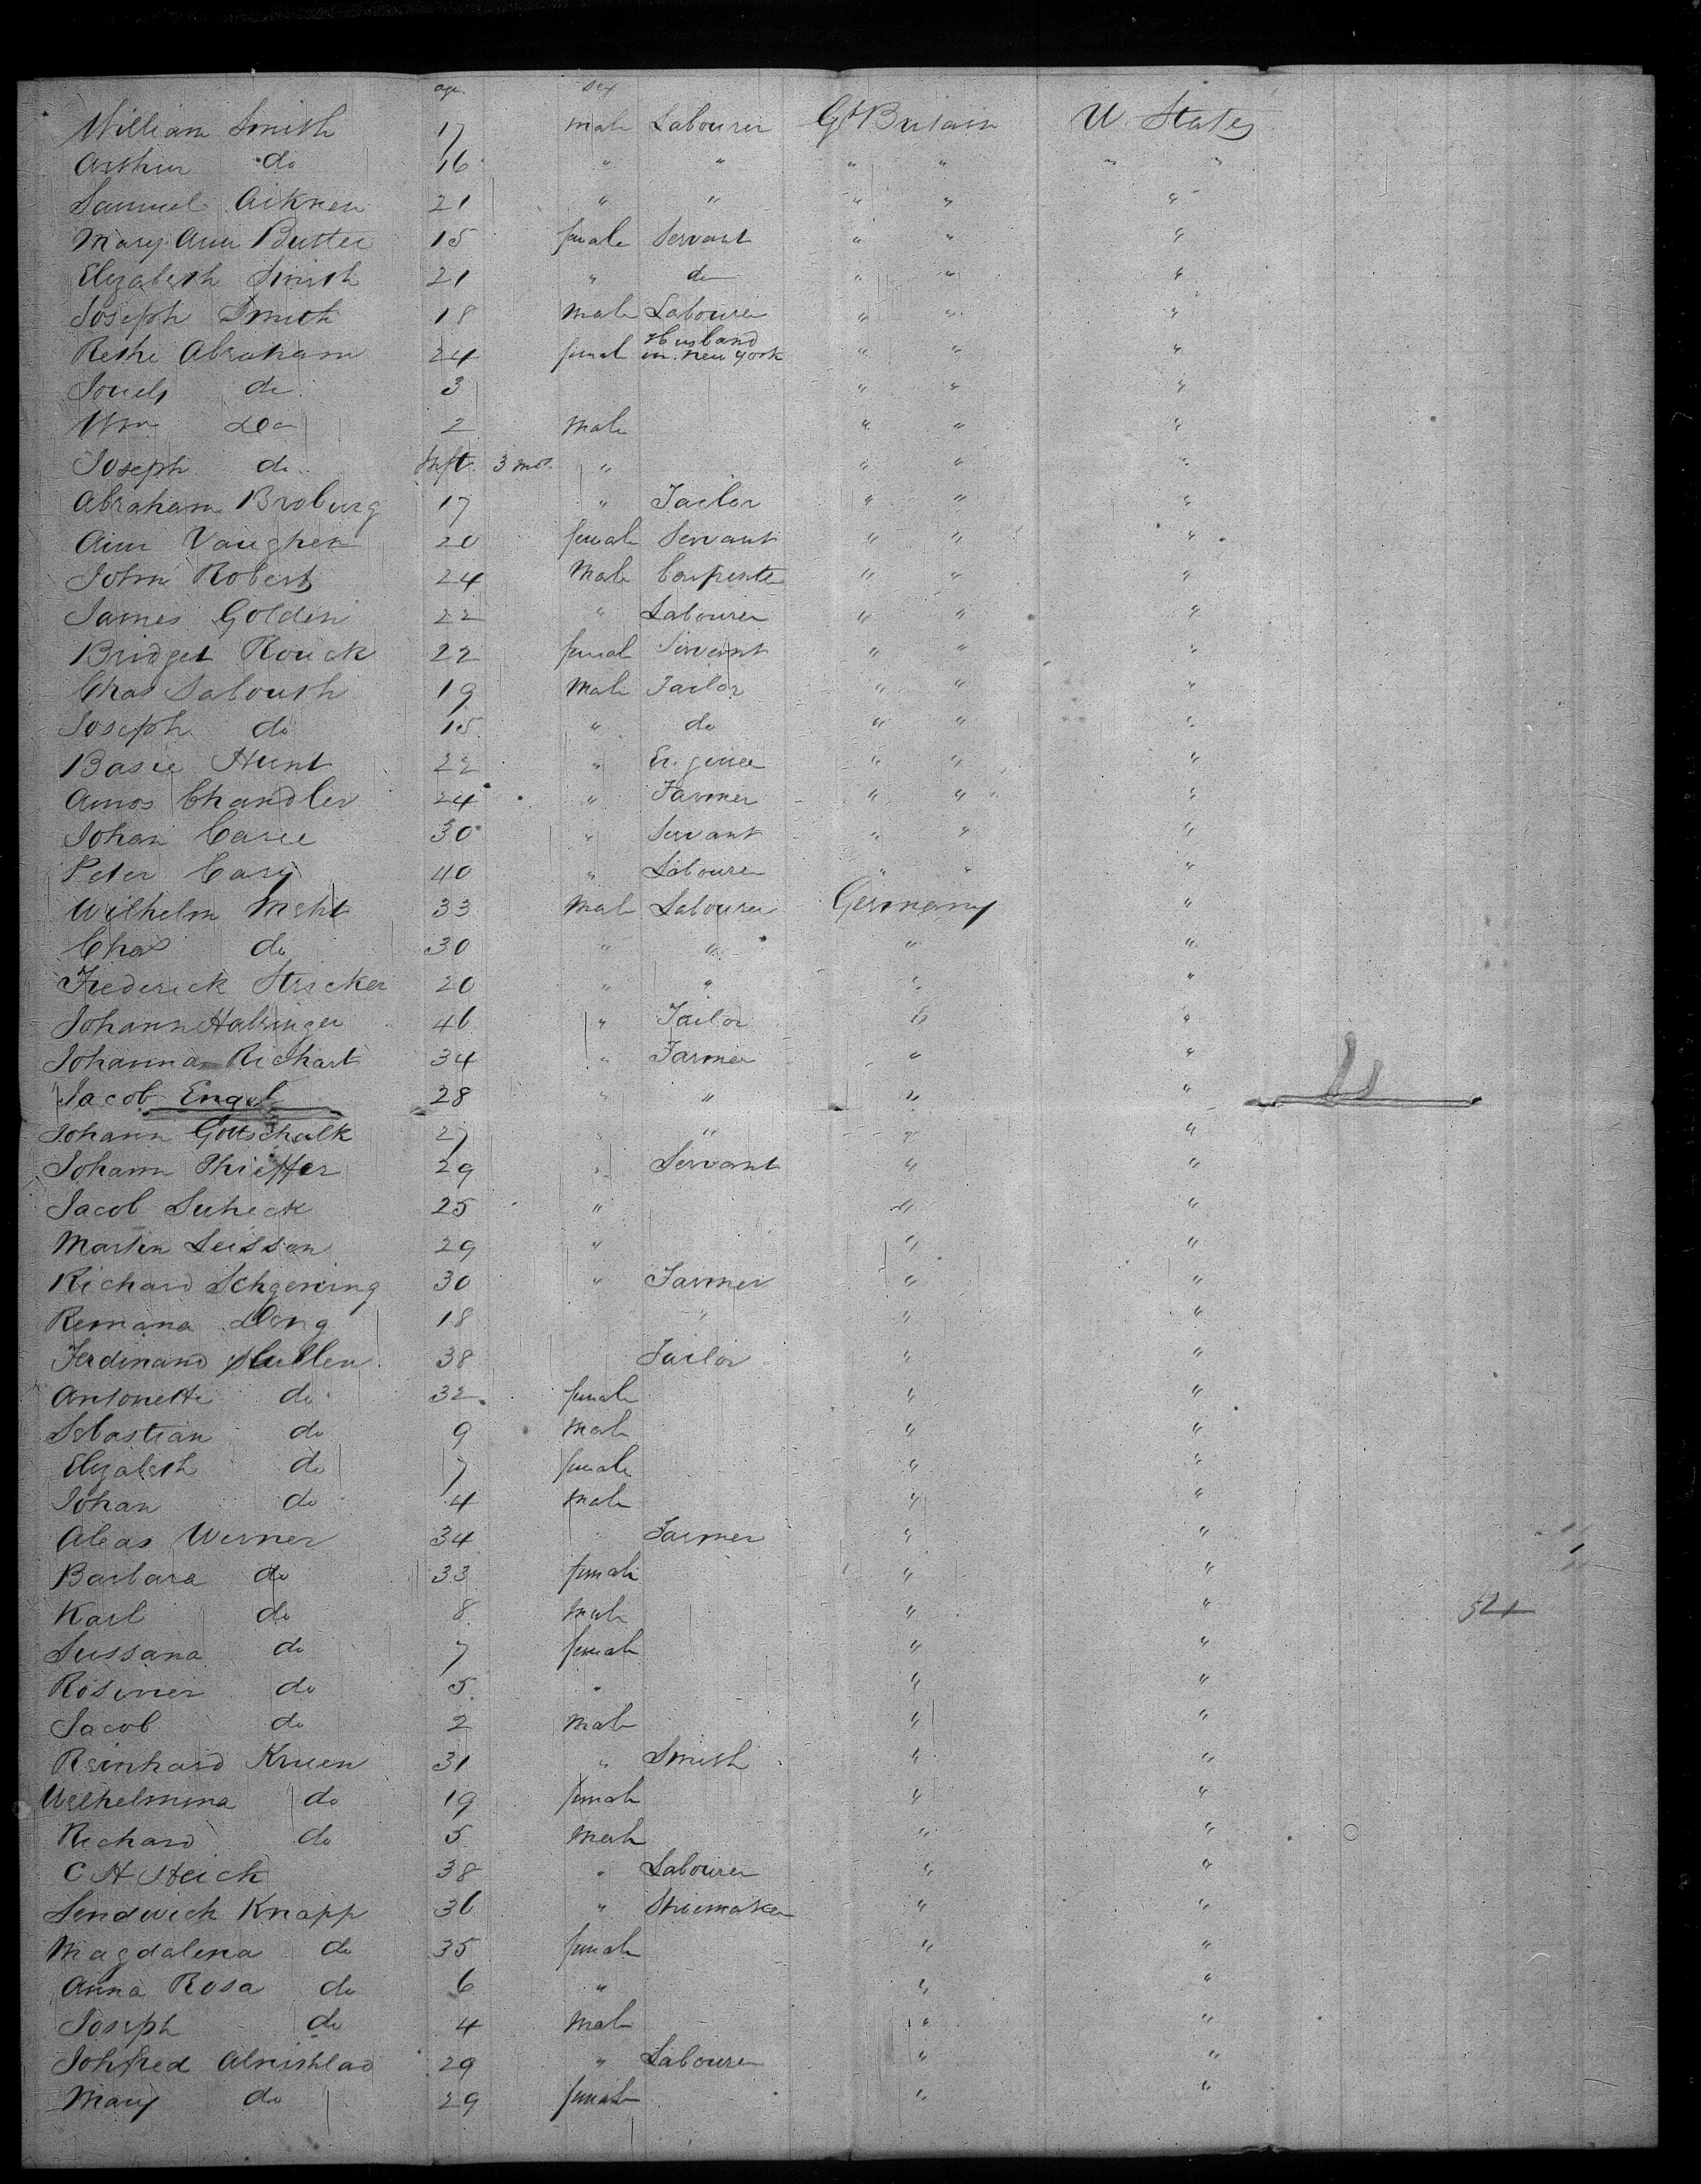 age. sex
William Smith 17 male Labourer Gt Britain U. States
Arthur do 16 " " " " " "
Samuel Aiknen 21 " " " " "
Mary Ann Butter 15 female Servant " " "
Elizabeth Smith 21 " do " " "
Joseph Smith 18 male Labourer " " "
Abraham 24 femal Husband in New York " " "
do 3 " " "
Wm Do 2 Male " " "
Joseph do Inft. 3 mos. " " " "
Abraham Broburg 17 " Tailor " " "
Ann Vaughen 20 female Servant " " "
John Roberts 24 Male Carpenter " " "
James Golden 22 " Labourer " " "
Bridget Rouck 22 femal Servant " " "
Chas Saboush 19 Male Tailor " " "
Joseph do 15 " do " " "
Basie Hunt 22 " Engineer " " "
Amos Chandler 24 " Farmer " " "
Johan Caree 30 " Servant " " "
Peter Cary 40 " Labourer " " "
Wilhelm Meht 33 Male Labourer Germany "
Chas do 30 " " " "
Frederick Stricker 20 " " " "
Johann Halsinger 46 " Tailor " "
Johanna Richart 34 " Farmer " "
Jacob Engel 28 " " " "
Johann Gottschalk 27 " " " "
Johann Phieffer 29 " Servant " "
Jacob Suheck 25 " " "
Martin Leisson 29 " " "
Richard Schgening 30 " Farmer " "
Remana Deng 18 " " "
Ferdinand Mullen 38 Tailor " "
Antonette do 32 female " "
Sebastian do 9 Male " "
Elizabeth do 7 female " "
Johan do 4 male " "
Aleas Werner 34 Farmer " "
Barbara do 33 female " "
Karl do 8 male " "
Sussana do 7 female " "
Rosiner do 5 " " "
Jacob do 2 male " "
Reinhard Kruen 31 " Smith " "
Wilhelmina do 19 female " "
Richard do 5 male " "
C H Heick 38 " Labourer " "
Lendwick Knapp 36 " Shoemaker " "
Magdalena do 35 female " "
Anna Rosa do 6 " " "
Joseph do 4 Male " "
Johfred Alnishlad 29 " Labourer " "
Mary do 29 female " "